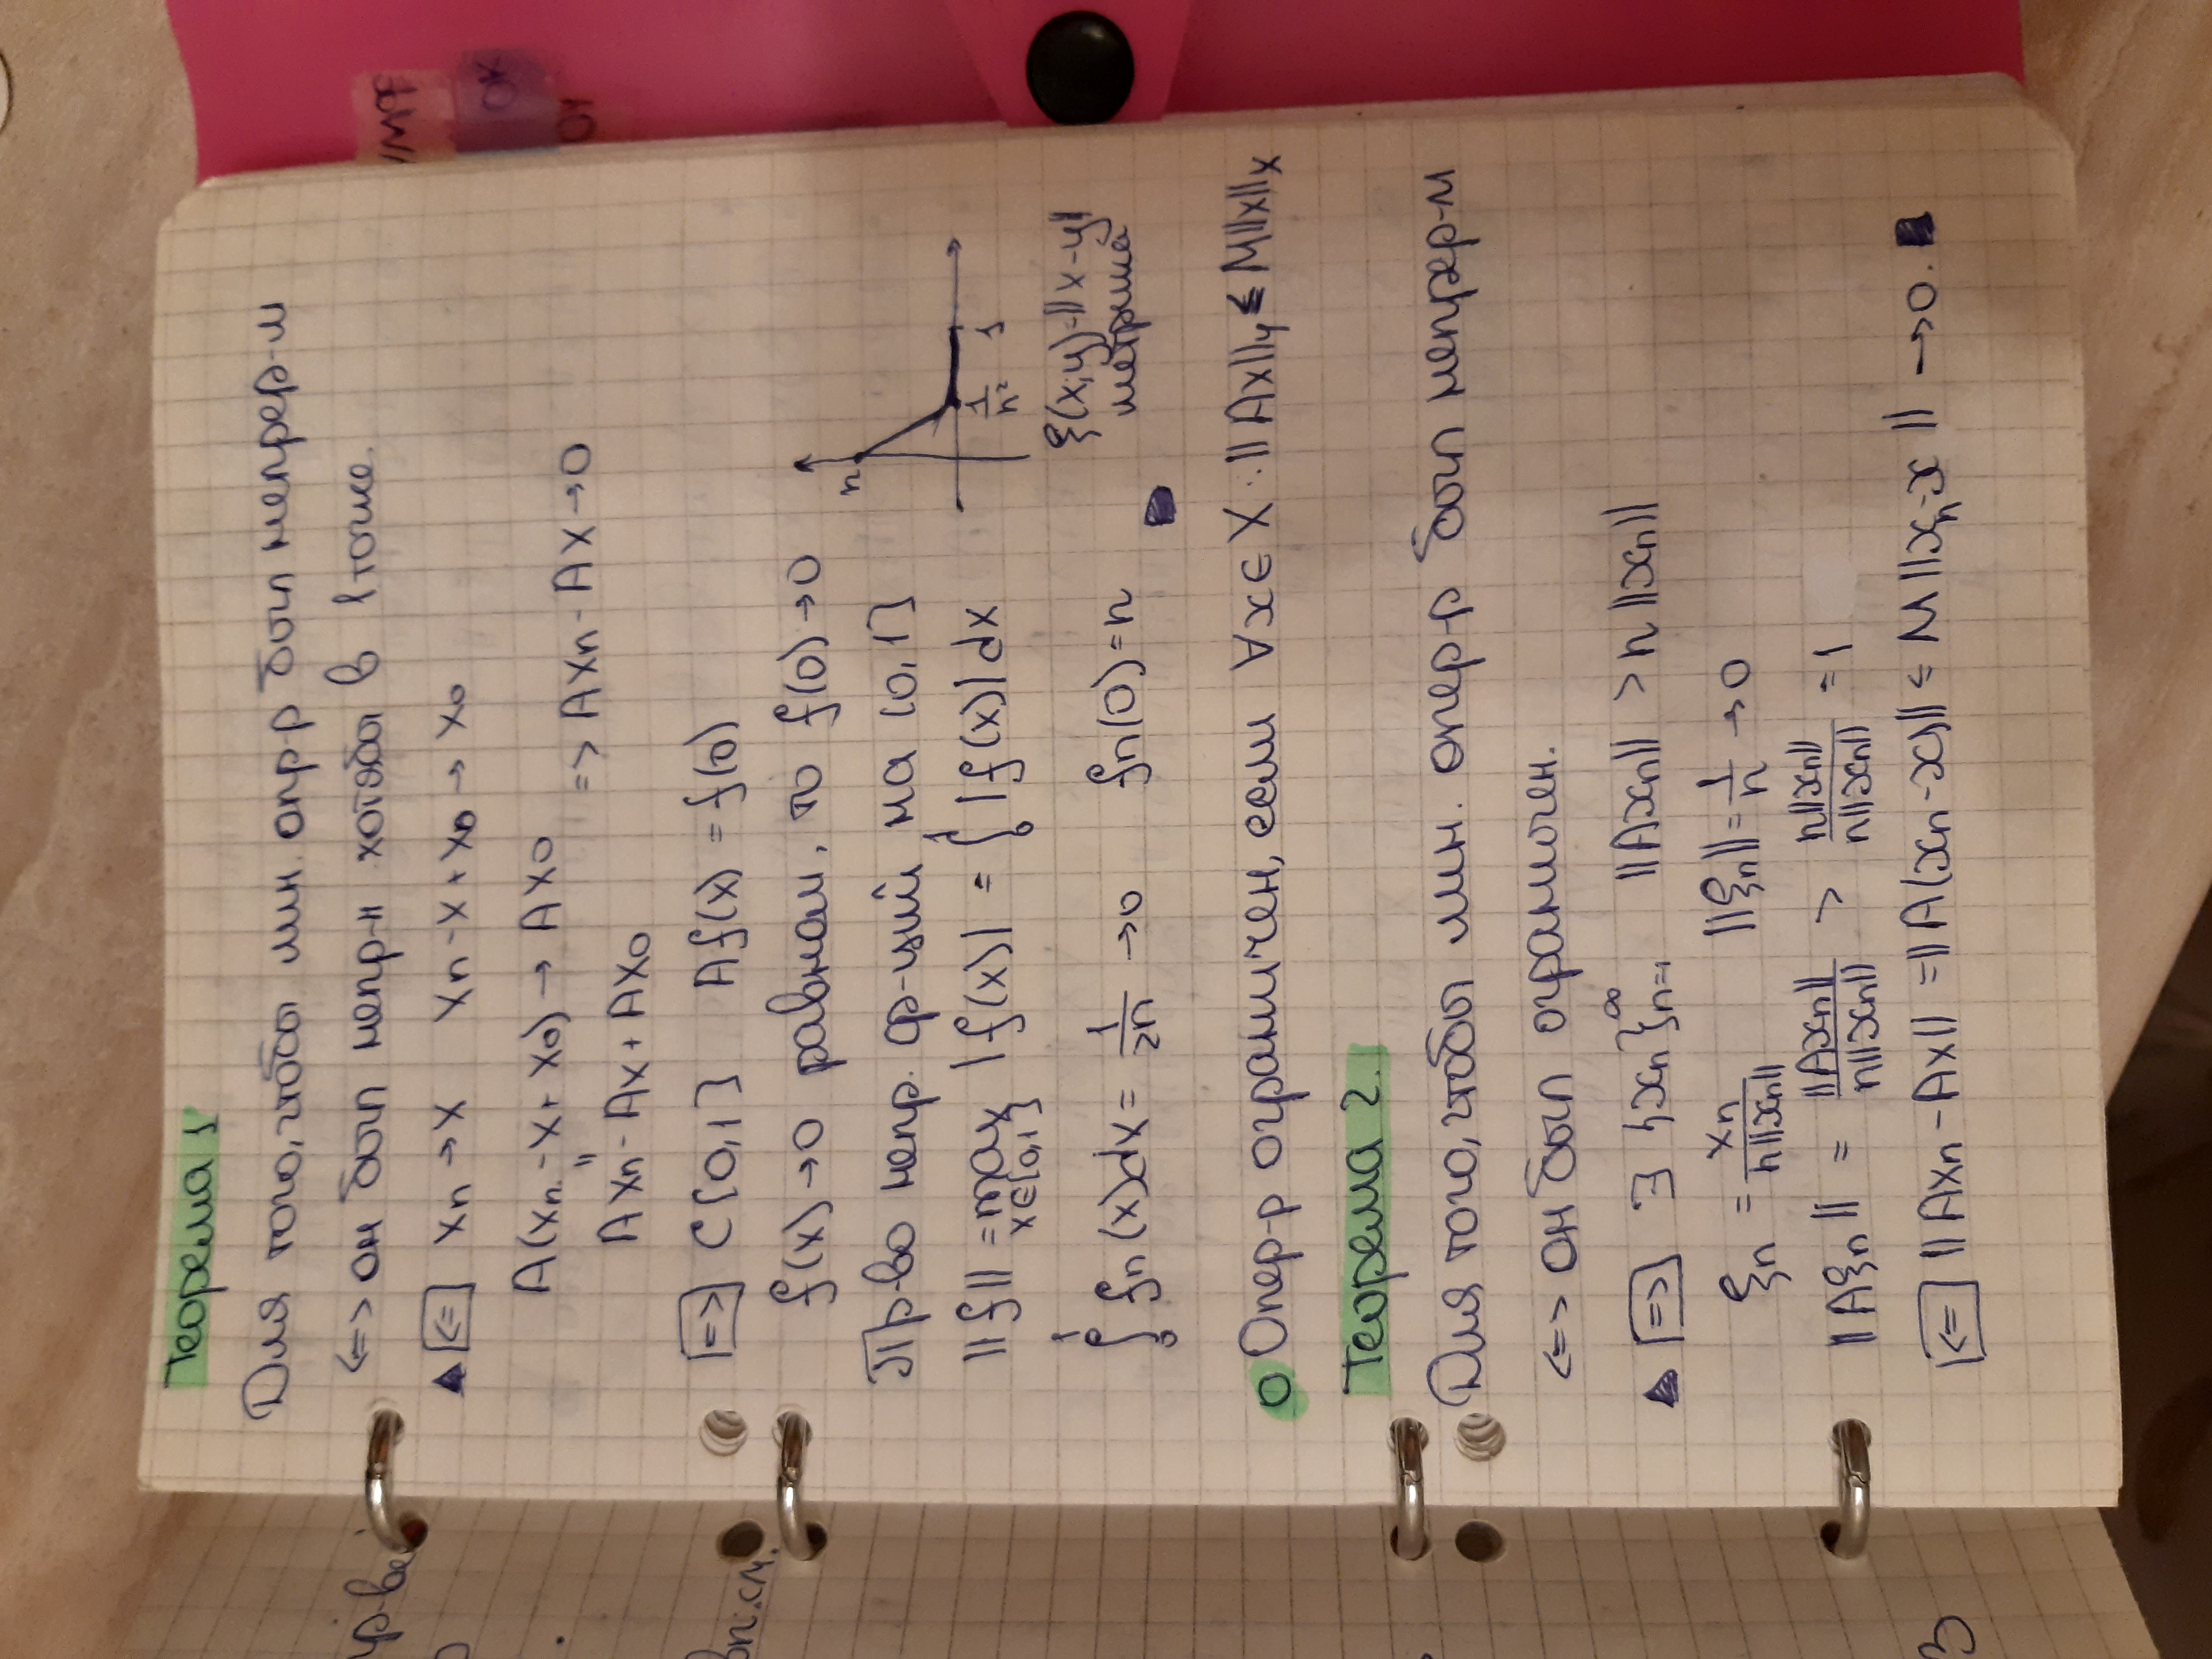 Теорема 1
Для того, чтобы лин. опр-р был непрер-м
<=> он был непр-н хотябы в 1 точке.
▲ [<=] xn → x   xn - x + x0 → x0
A(xn - x + x0) → Ax0
"   => Axn - Ax → 0
Axn - Ax + Ax0
[=>] C[0,1]   Af(x) = f(0)
f(x) → 0 равном, то f(0) → 0
Пр-во непр. ф-ций на [0,1]
||f|| = max |f(x)| = ∫₀¹ |f(x)| dx
x∈[0,1]
n
1/n²   1
∫₀¹ fn(x)dx = 1/2n → 0   fn(0) = n
ξ(x,y)=||x-y||
метрика
О Опер-р ограничен, если ∀x ∈ X : ||Ax||y ≤ M||x||x
Теорема 2.
Для того, чтобы лин. опер-р был непрер-м
<=> он был ограничен.
▲ [=>] ∃ {xn}∞n=1   ||Axn|| > n ||xn||
ξn = xn/n||xn||   ||ξn|| = 1/n → 0
||Aξn|| = ||Axn||/n||xn|| > n||xn||/n||xn|| = 1
[<=] ||Axn - Ax|| = ||A(xn - x)|| ≤ M ||xn - x|| → 0. ■
УМФ
ОК
пр-ве
3